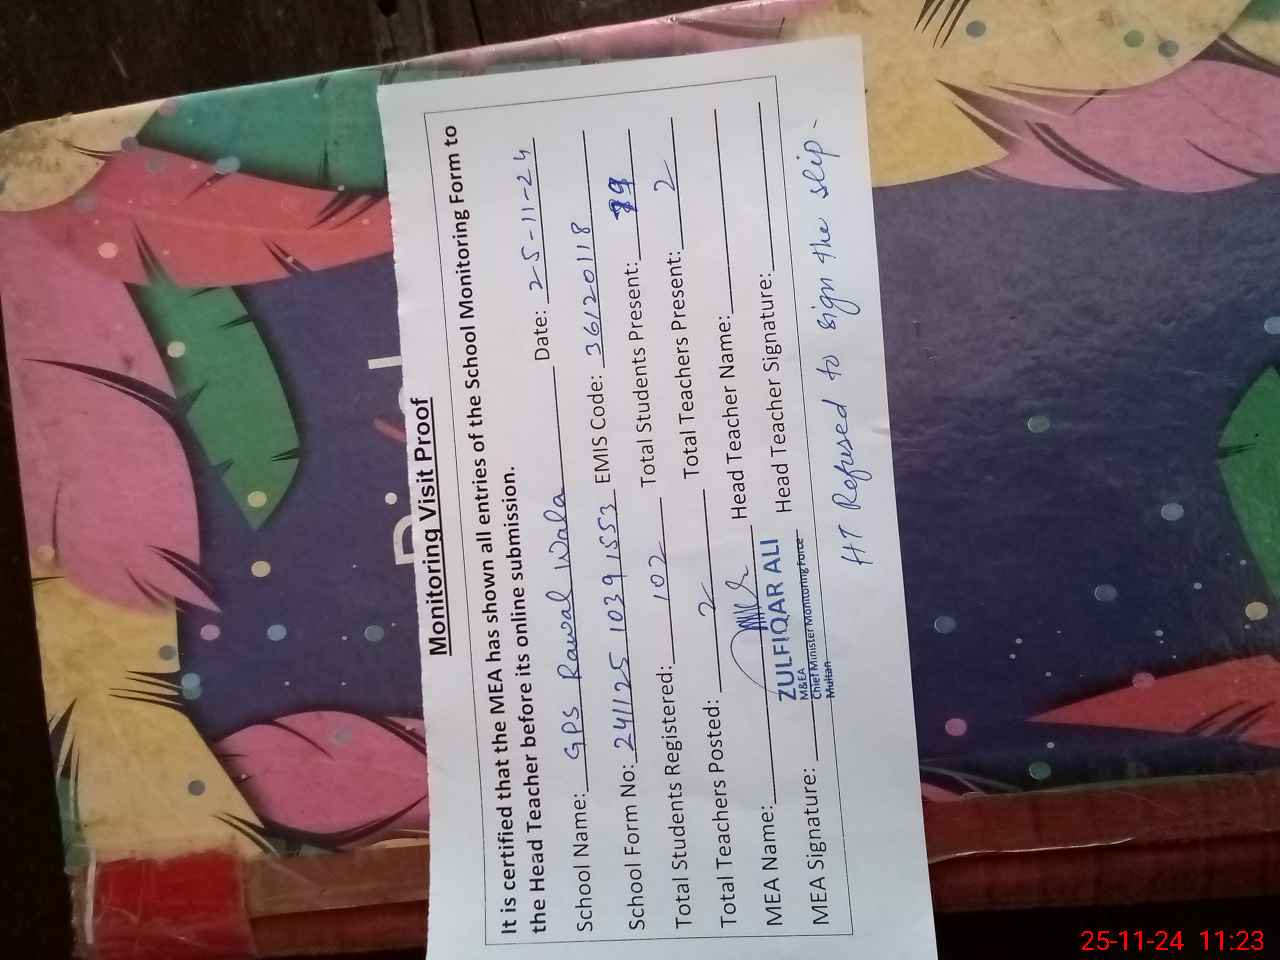 Monitoring Visit Proof
It is certified that the MEA has shown all entries of the School Monitoring Form to
the Head Teacher before its online submission.
School Name: GPS Rawal Wala Date: 25-11-24
School Form No: 241125 1039 1553 EMIS Code: 36120118
Total Students Registered: 102 Total Students Present:
Total Teachers Posted: 2 Total Teachers Present: 2
MEA Name: Head Teacher Name:
ZULFIQAR ALI
M&EA
Chief Minister Monitoring Force
Multan
MEA Signature: Head Teacher Signature:
HT Refused to sign the slip-
25-11-24 11:23